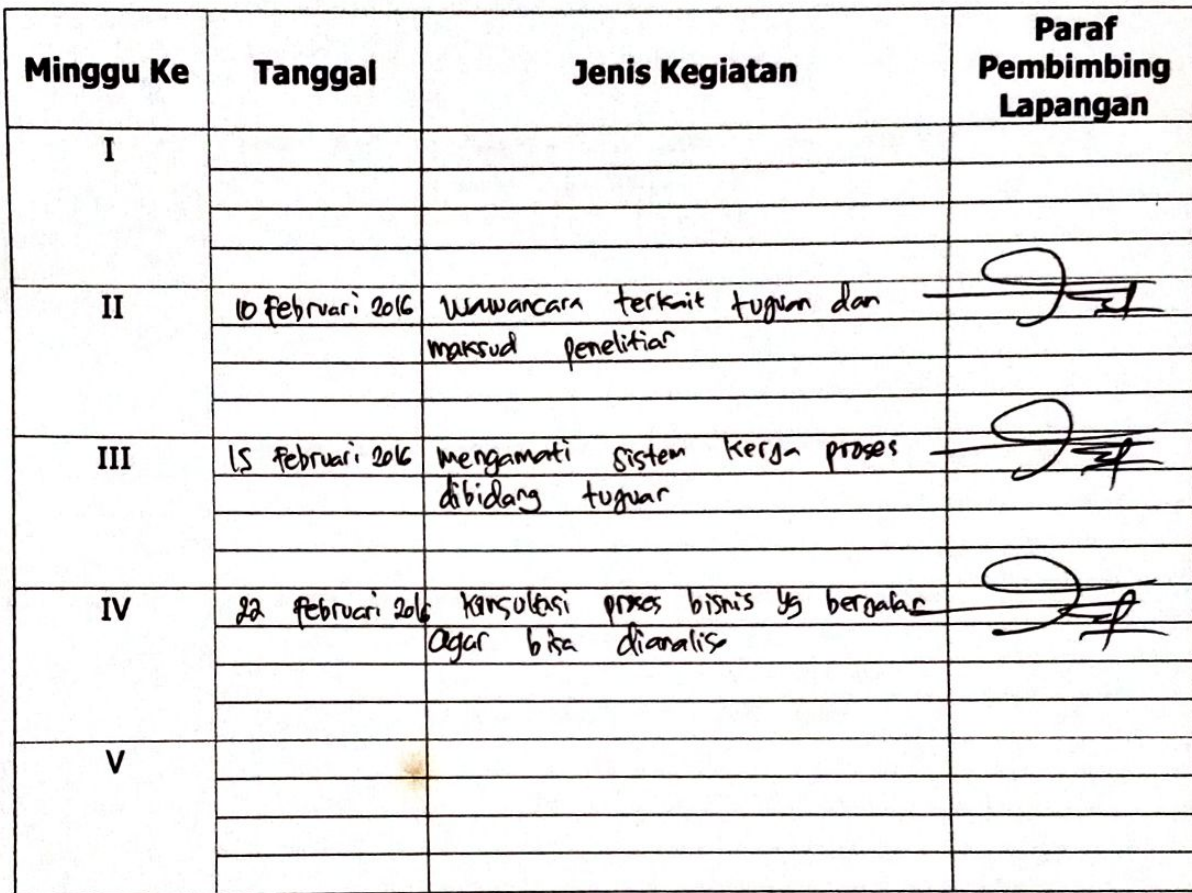 Minggu Ke Tanggal Jenis Kegiatan Paraf Pembimbing Lapangan
I
II 10 Februari 2016 wawancara terkait tujuan dan
maksud penelitian
III 15 Februari 2016 mengamati sistem kerja proses
dibidang
IV 22 Februari 2016 konsultasi proses bisnis yg berjalan
agar bisa dianalisa
V